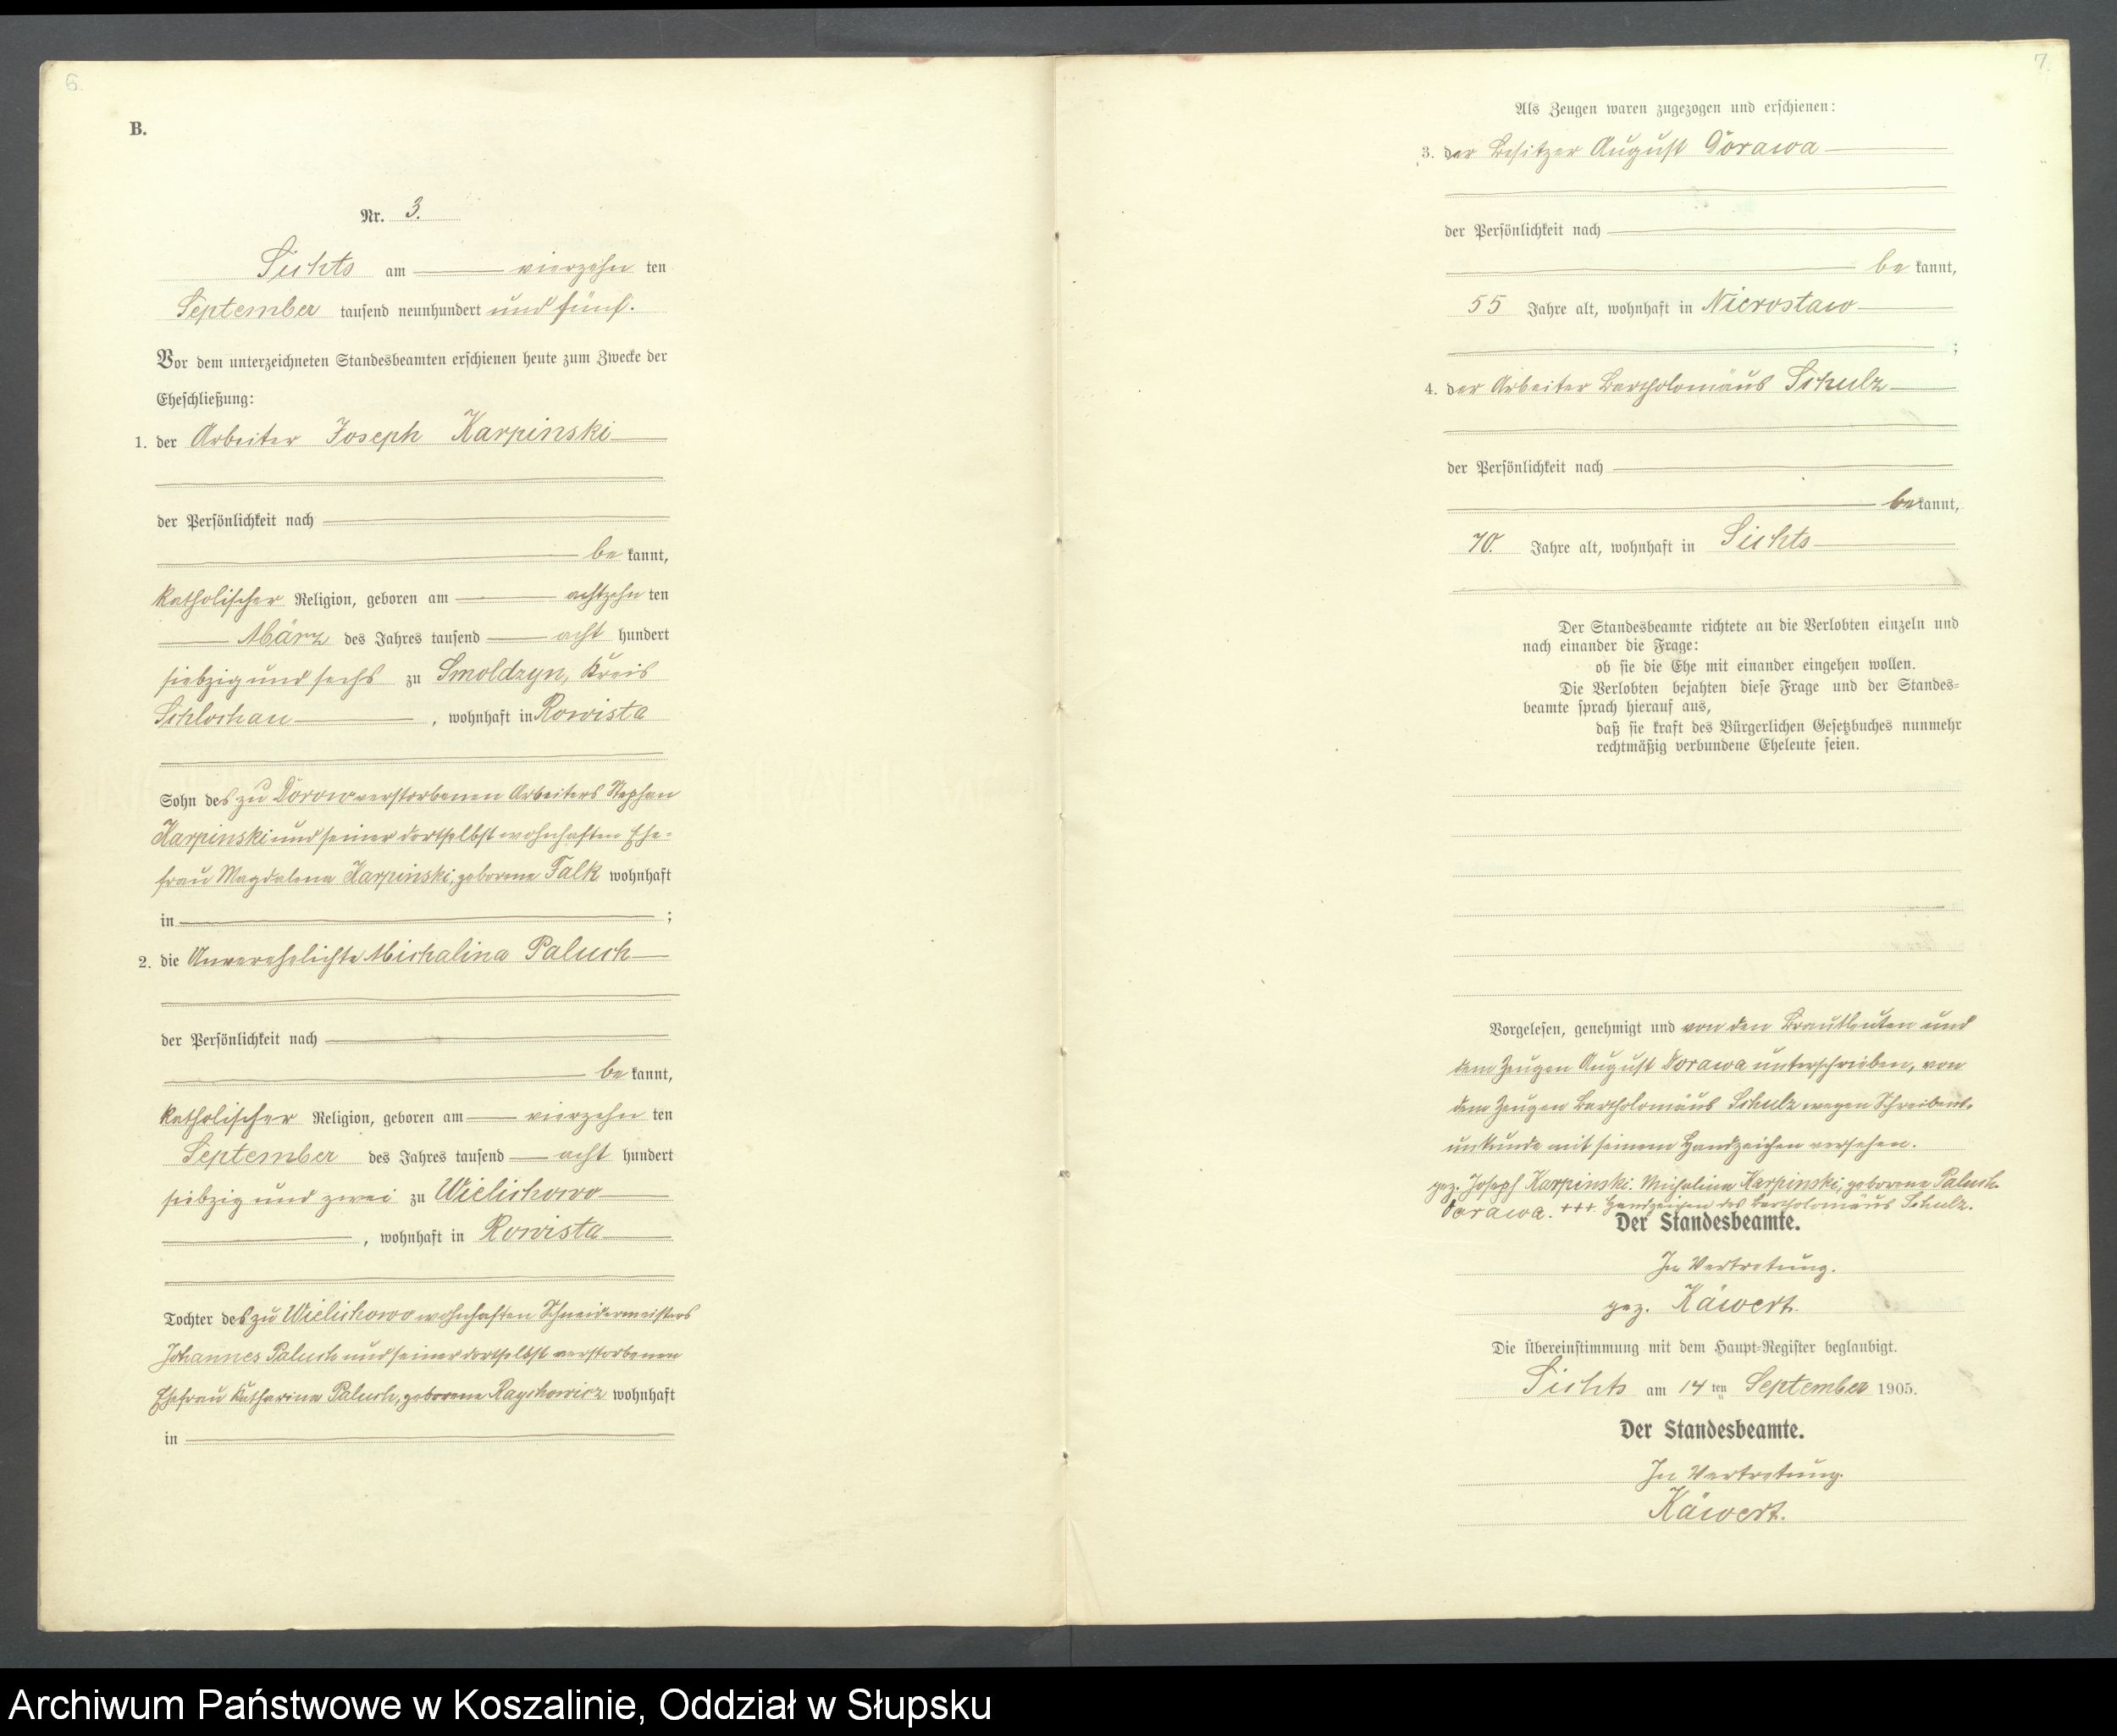 6.
B.
Nr. 3.
Sichts am vierzehn ten
September tausend neunhundert und fünf.
Vor dem unterzeichneten Standesbeamten erschienen heute zum Zwecke der
Eheschließung:
1. der Arbeiter Joseph Karpinski
der Persönlichkeit nach
be kannt,
katholischer Religion, geboren am achtzehn ten
März des Jahres tausend acht hundert
siebzig und sechs zu Smoldzyn, Kreis
Schlochau, wohnhaft in Rowista
Sohn des zu Borow verstorbenen Arbeiters Stephan
Karpinski und seiner dortselbst wohnhaften Ehe-
frau Magdalena Karpinski, geborene Falk wohnhaft
in ;
2. die Unverehelichte Michalina Paluch
der Persönlichkeit nach
be kannt,
katholischer Religion, geboren am vierzehn ten
September des Jahres tausend acht hundert
siebzig und zwei zu Wielichowo
, wohnhaft in Rowista
Tochter des zu Wielichowo wohnhaften Schneidermeisters
Johannes Paluch und seiner dortselbst verstorbenen
Ehefrau Katharina Paluch, geborene Raychowicz wohnhaft
in
7.
Als Zeugen waren zugezogen und erschienen:
3. der Besitzer August Dorawa
der Persönlichkeit nach
be kannt,
55 Jahre alt, wohnhaft in Nierostaw
;
4. der Arbeiter Bartholomäus Schulz
der Persönlichkeit nach
be kannt,
70. Jahre alt, wohnhaft in Sichts
Der Standesbeamte richtete an die Verlobten einzeln und
nach einander die Frage:
ob sie die Ehe mit einander eingehen wollen.
Die Verlobten bejahten diese Frage und der Standes-
beamte sprach hierauf aus,
daß sie kraft des Bürgerlichen Gesetzbuches nunmehr
rechtmäßig verbundene Eheleute seien.
Vorgelesen, genehmigt und von den Brautleuten und
dem Zeugen August Dorawa unterschrieben, von
dem Zeugen Bartholomäus Schulz wegen Schreibens-
unkunde mit seinem Handzeichen versehen.
gez. Joseph Karpinski. Michalina Karpinski, geborene Paluch.
Dorawa. +++ Handzeichen des Bartholomäus Schulz.
Der Standesbeamte.
In Vertretung.
gez. Käwert.
Die Übereinstimmung mit dem Haupt-Register beglaubigt.
Sichts am 14 ten September 1905.
Der Standesbeamte.
In Vertretung.
Käwert.
Archiwum Państwowe w Koszalinie, Oddział w Słupsku